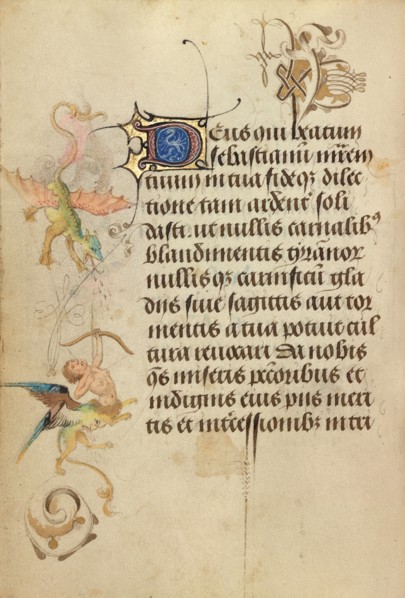 Deus qui beatum
sebastianū mr̄em
tuum in tua fide qȝ dilec
tione tam ardent᷑ soli
dasti. ut nullis carnalibꝰ
blandimentis tyrānoꝝ
nullis qȝ carnificū gla
diis siue sagittis aut tor
mentis a tua potuit cul
tura reuocari Da nobis
q̄s miseris pc̄coribus et
indignis eius piis meri
tis et intērcessionibȝ in tri